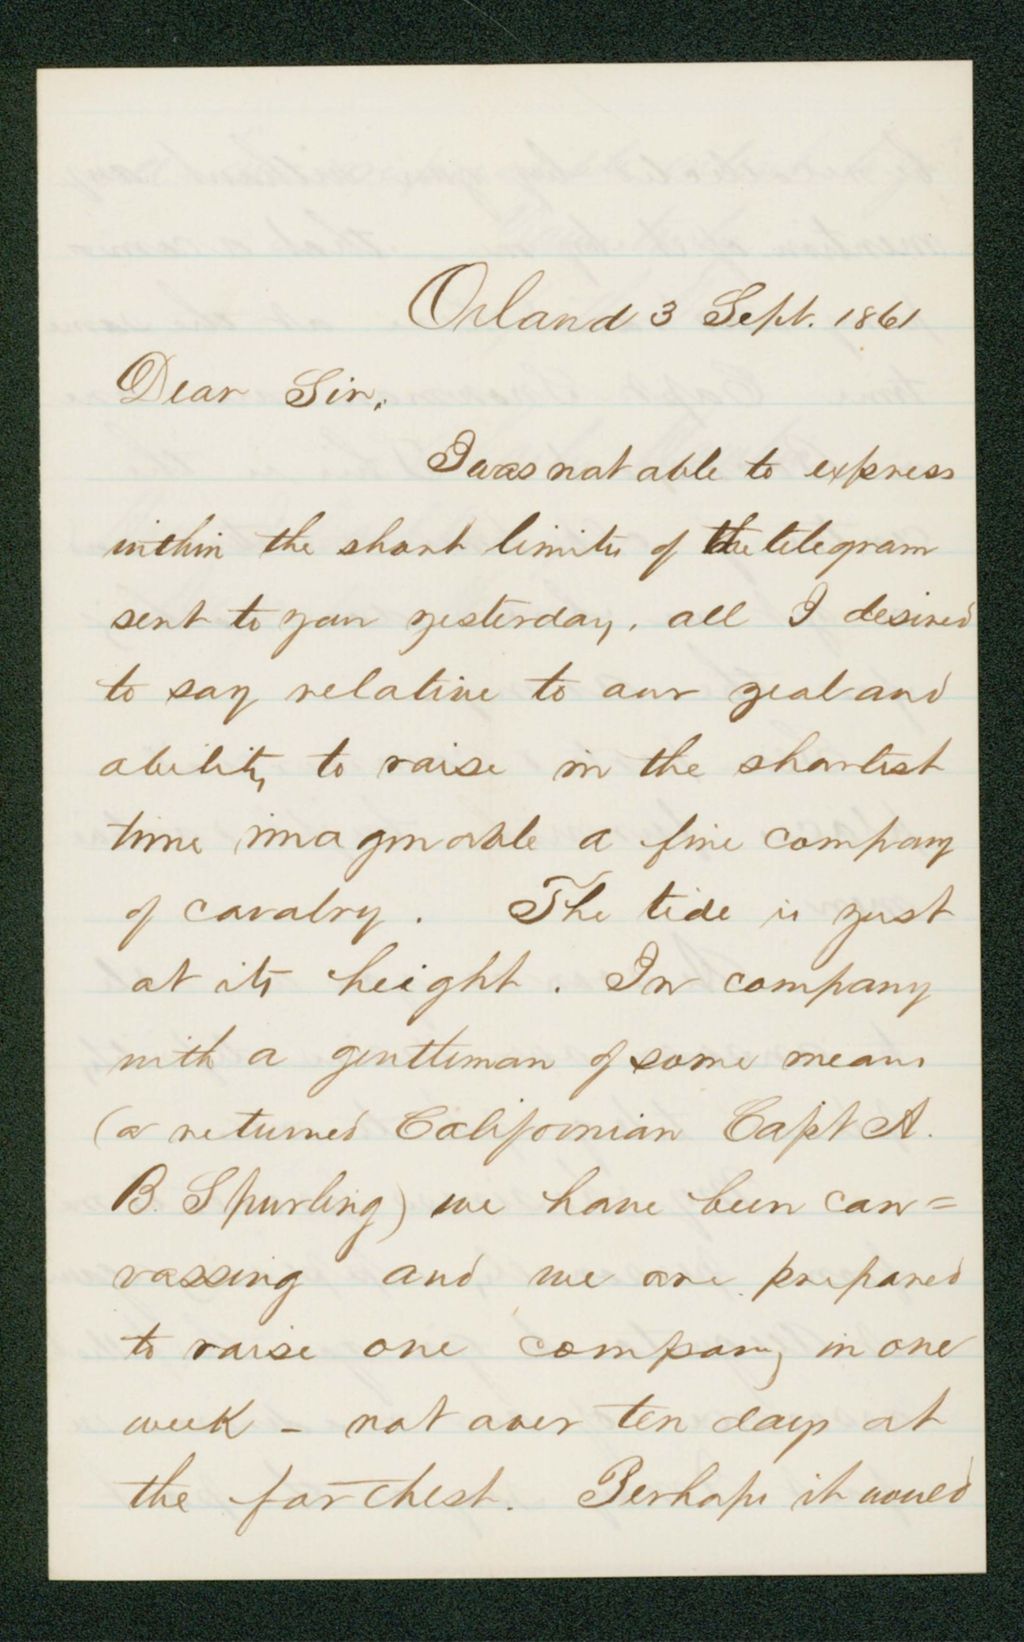 Orland 3 Sept. 1861
Dear Sir,
I was not able to express
within the short limits of the telegram
sent to you yesterday, all I desired
to say relative to our zeal and
ability to raise in the shortest
time imaginable a fine company
of cavalry. The tide is just
at its height. In company
with a gentleman of some means
(a returned Californian Capt A.
B. Spurling) we have been can=
vassing and we are prepared
to raise one company in one
week - not over ten days at
the farthest. Perhaps it would